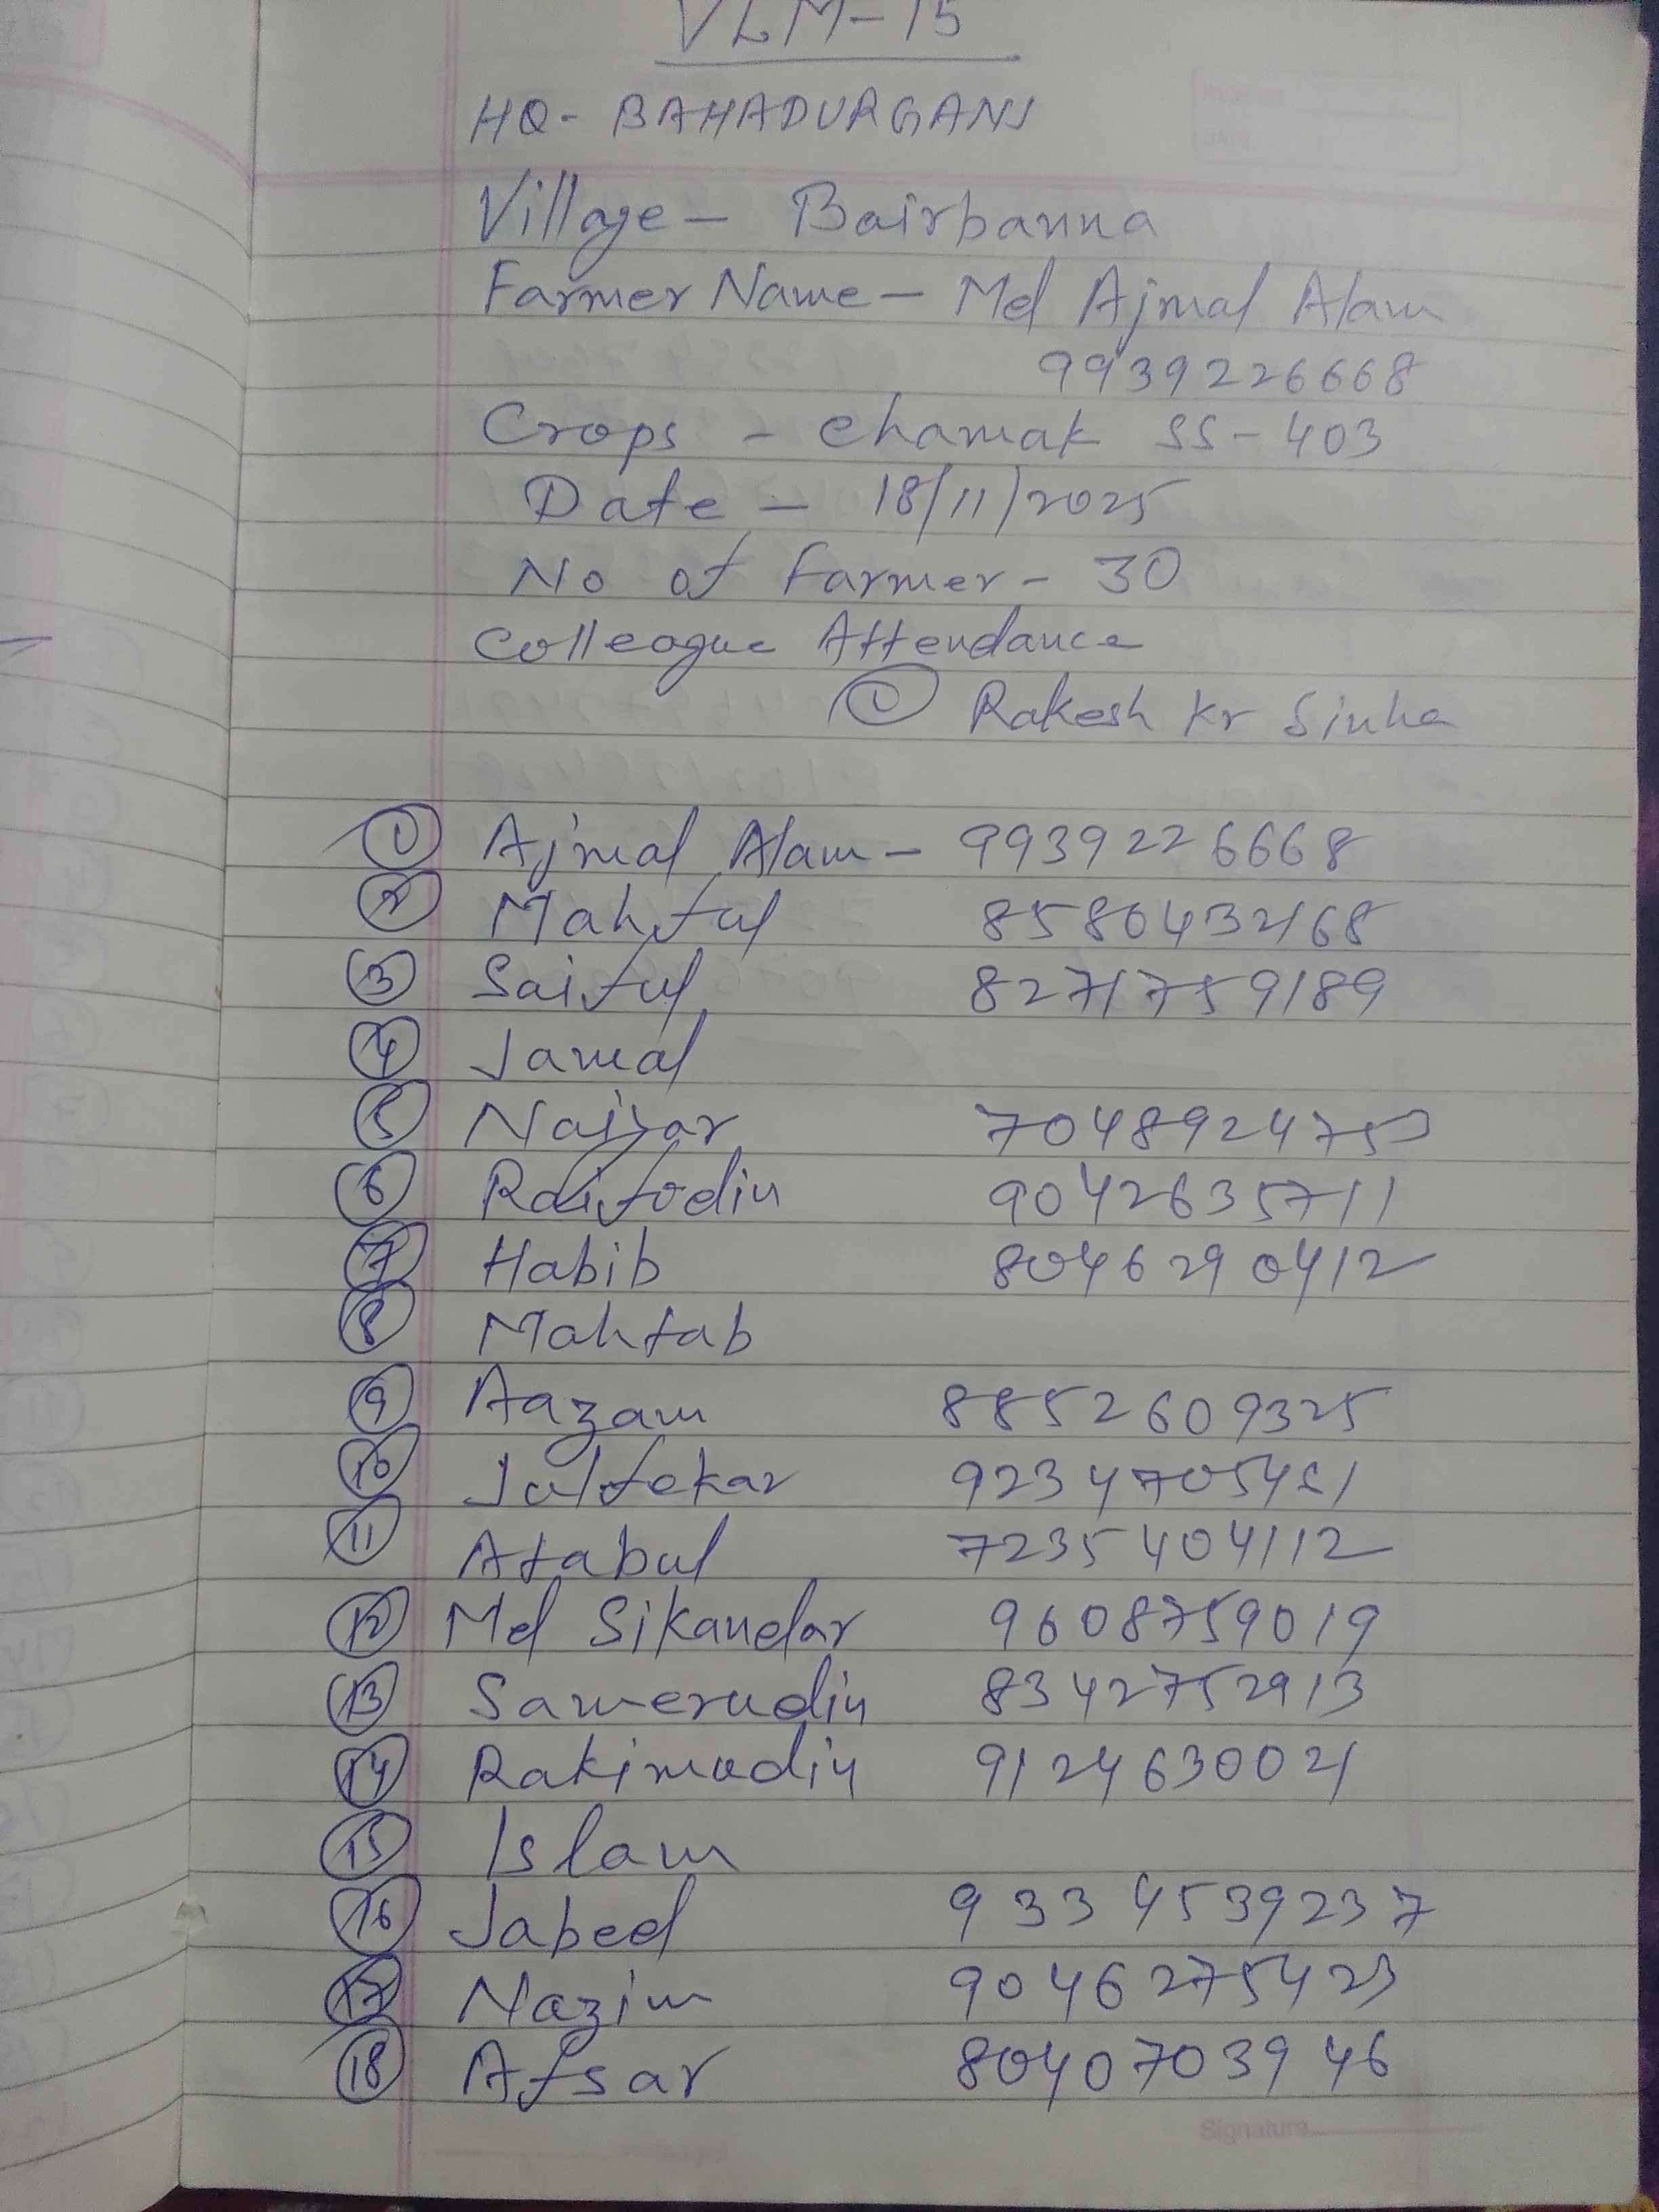 VLM-15
HQ- BAHADURGANJ
Village - Bairbanna
Farmer Name - Md Ajmal Alam
9939226668
Crops - Chamak SS-403
Date - 18/11/2025
No of Farmer - 30
Colleague Attendance
① Rakesh Kr Sinha
① Ajmal Alam - 9939226668
② Mahful 8580432168
③ Saiful 8271759189
④ Jamal
⑤ Naiyar 7048924753
⑥ Raifodin 9042635711
⑦ Habib 8046290412
⑧ Mahtab
⑨ Aazam 8852609325
⑩ Julfekar 9234705451
⑪ Afabul 7235404112
⑫ Md Sikandar 9608759019
⑬ Samerudin 8342752913
⑭ Rakimudin 9124630021
⑮ Islam
⑯ Jabed 9334539237
⑰ Nazim 9046275423
⑱ Afsar 8040703946
Signature